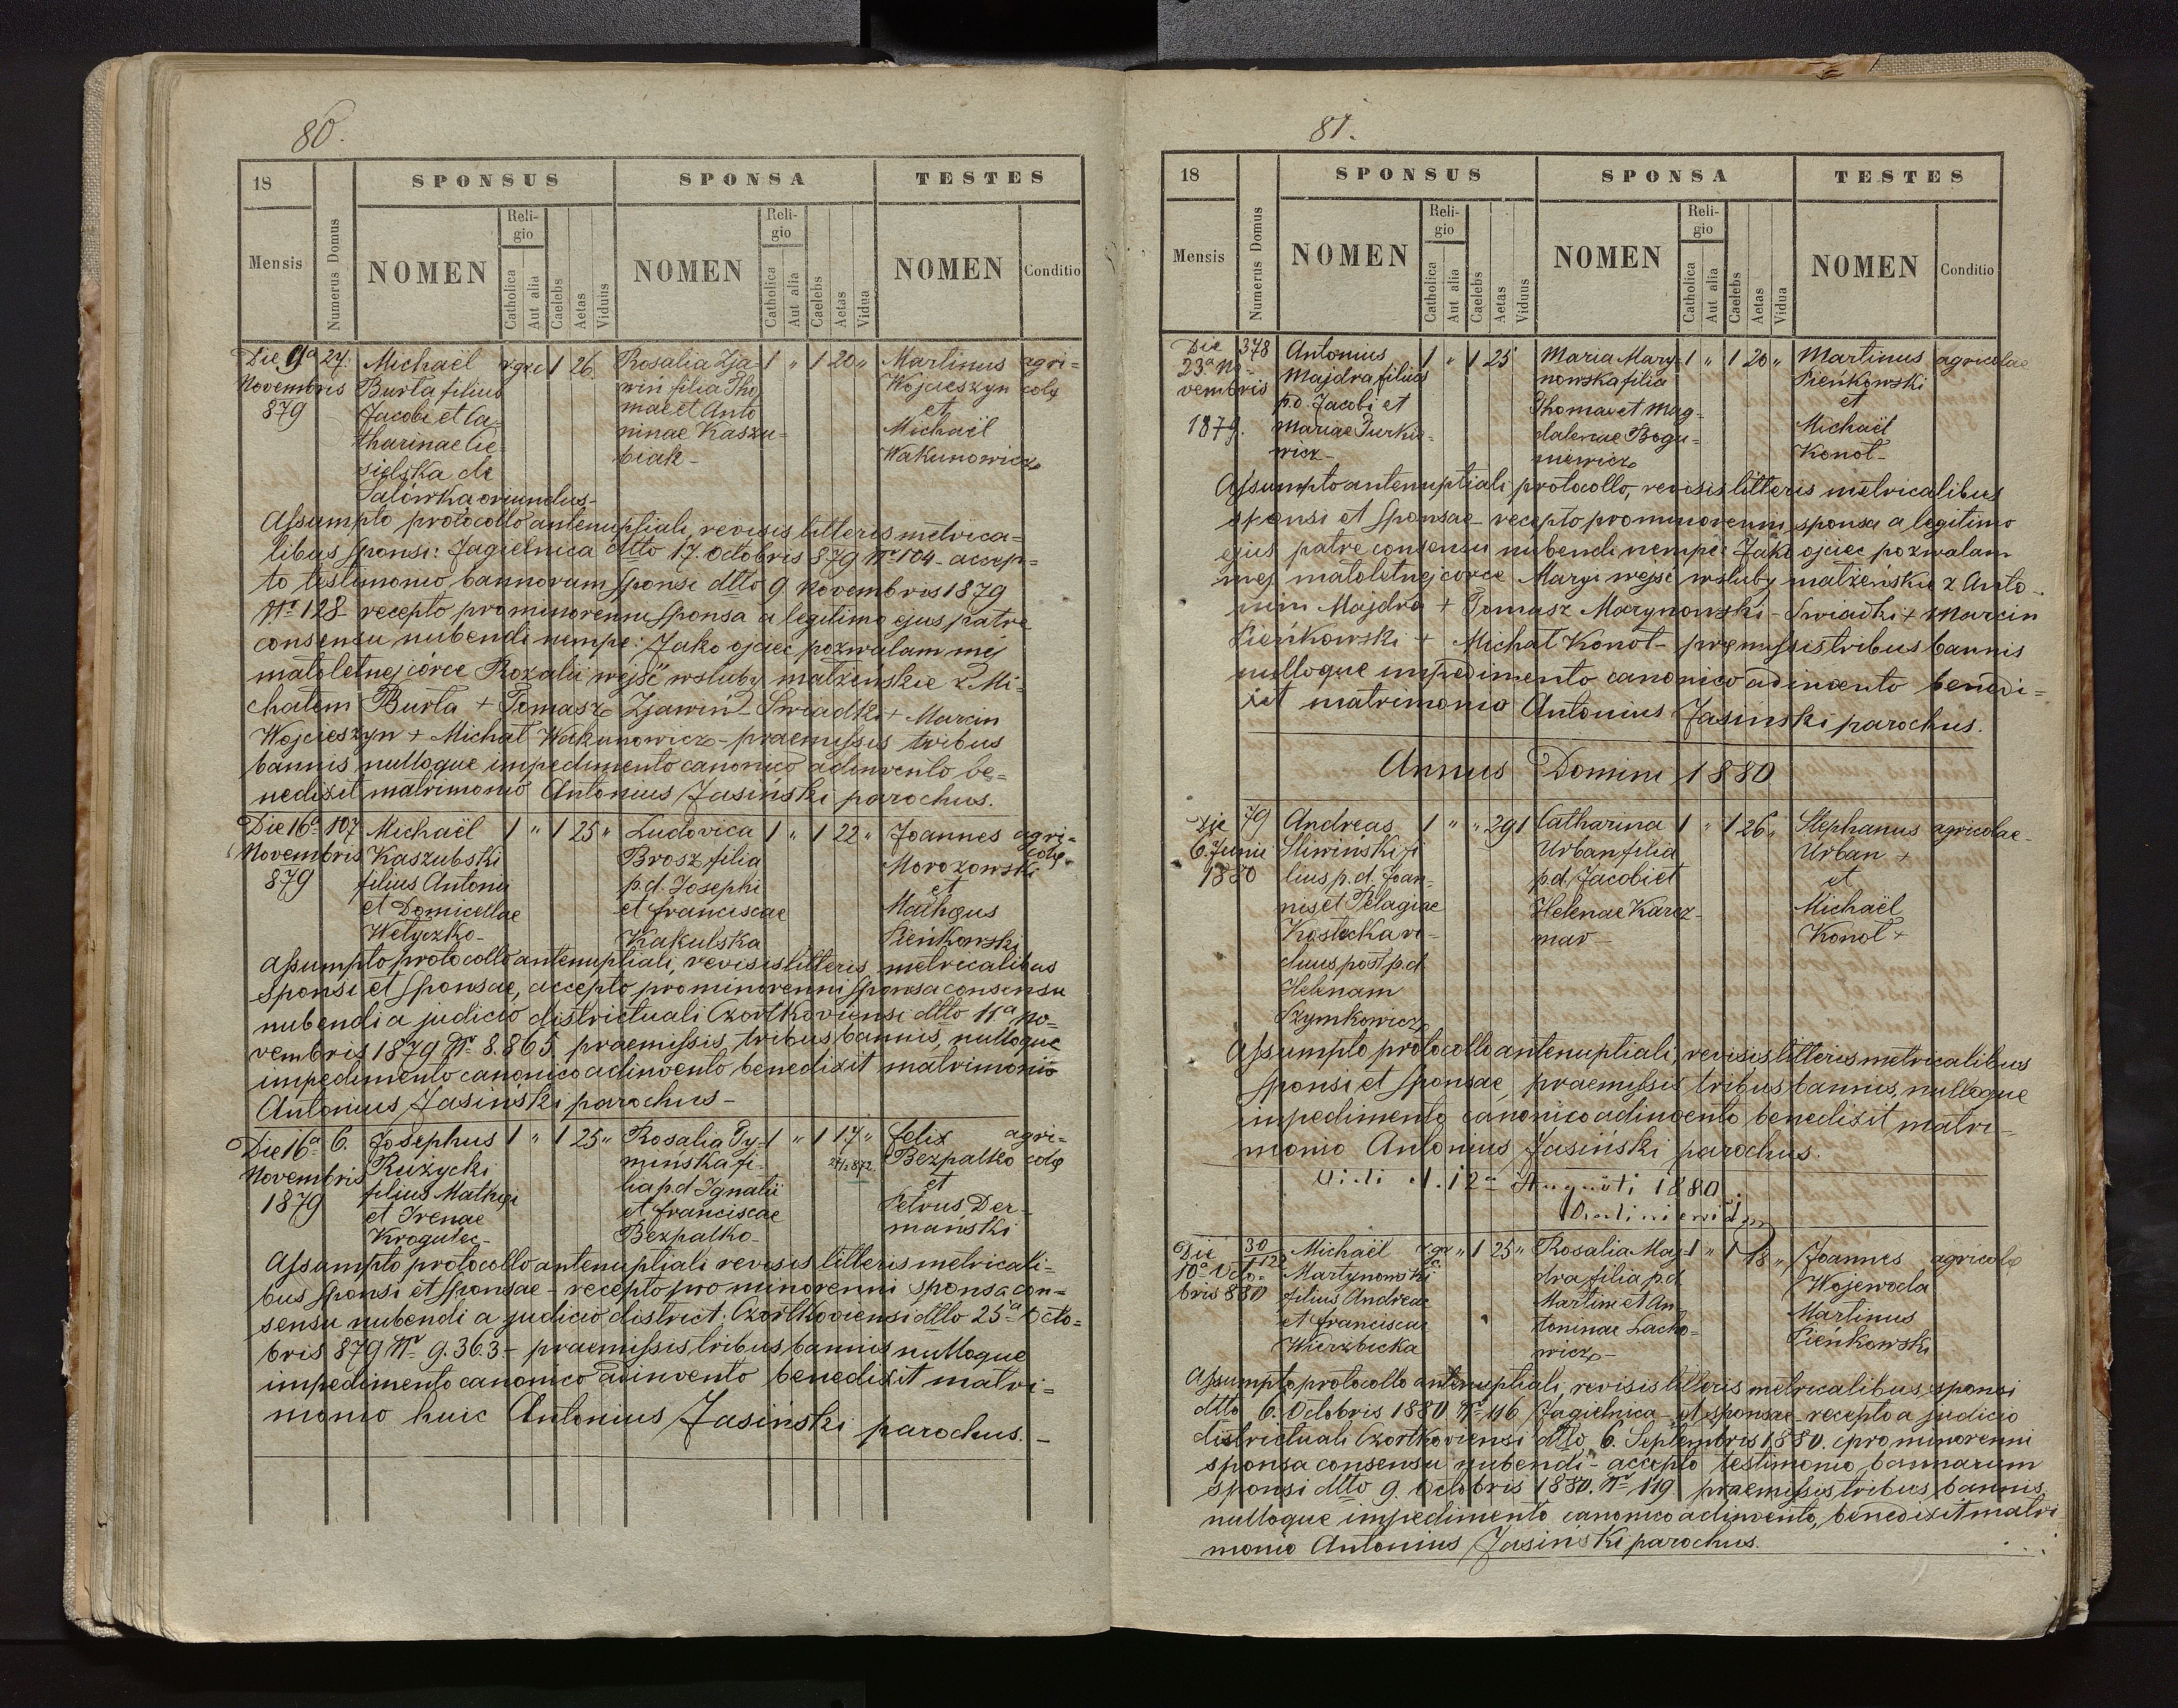 80.
18
SPONSUS SPONSA TESTES
Mensis Numerus Domus NOMEN Religio Catholica Aut alia Caelebs Aetas Viduus NOMEN Religio Catholica Aut alia Caelebs Aetas Vidua NOMEN Conditio
Die 9a 24. Michaël r. gr. c 1 26. Rosalia Zja- 1 " 1 20 " Martinus agri=
Novembris Burta filius win filia Tho Wojcieszyn colę
879 Jacobi et Ca- mae et Anto et
tharinae Cie- ninae Kaszu= Michaël
sielska de biak- Wakunowicz
Salówka oriundus-
Assumpto protocollo antenuptiali, revisis litteris metrica=
libus sponsi: Jagielnica dtto 17. Octobris 879 Nr 104 - accep=
to testimonio bannorum sponsi dtto 9 Novembris 1879
Nr 128 - recepto pro minorenni sponsa a legitimo ejus patre
consensu nubendi nempe: Jako ojciec pozwalam mej
małoletnej córce Rozalii wejść w śluby małżeńskie z Mi=
chałem Burta + Tomasz Zjawin - Swiadki + Marcin
Wojcieszyn + Michał Wakunowicz - praemissis tribus
bannis nulloque impedimento canonico adinvento be=
nedixit matrimonio Antonius Jasiński parochus.
Die 16a 107 Michaël 1 " 1 25 " Ludovica 1 " 1 22 " Joannes agri=
Novembris Kaszubski Brosz filia Morozowski colę.
879 filius Antonii p.d. Josephi et
et Domicellae et Franciscae Mathęus
Welyczko- Kakulska Pieńkowski
Assumpto protocollo antenuptiali, revisis litteris metricalibus
sponsi et sponsae, accepto pro minorenni sponsa consensu
nubendi a judicio districtuali Czortkoviensi dtto 11a No=
vembris 1879 Nr 8.865 praemissis tribus bannis, nulloque
impedimento canonico adinvento benedixit matrimonio
Antonius Jasiński parochus-
Die 16a 6. Josephus 1 " 1 25 " Rosalia Ty- 1 " 1 17 " Felix agri=
Novembris Ruzycki mińska fi- Bezpalko colę
1879 filius Mathęi lia p.d Ignatii et
et Irenae et Franciscae Petrus Der-
Krogulec- Bezpalko- mański
Assumpto protocollo antenuptiali revisis litteris metricali=
bus sponsi et sponsae - recepto pro minorenni sponsa con=
sensu nubendi a judicio district: Czortkoviensi dtto 25a Octo=
bris 879 Nr 9.363 - praemissis tribus bannis nulloque
impedimento canonico adinvento benedixit matri=
monio huic Antonius Jasiński parochus.-
81.
18
SPONSUS SPONSA TESTES
Mensis Numerus Domus NOMEN Religio Catholica Aut alia Caelebs Aetas Viduus NOMEN Religio Catholica Aut alia Caelebs Aetas Vidua NOMEN Conditio
Die 378 Antonius 1 " 1 25 Maria Mary- 1 " 1 20 " Martinus agricolae
23a No- Majdra filius nowska filia Pieńkowski
vembris p.d. Jacobi et Thomae et Mag- et
1879. Mariae Purkie- dalenae Bogu= Michaël
wicz- niewicz Konot-
Assumpto antenuptiali protocollo, revisis litteris metricalibus
sponsi et sponsae - recepto pro minorenni sponsa a legitimo
ejus patre consensu nubendi nempe: Jako ojciec pozwalam
mej małoletnej córce Maryi wejść w śluby małżeńskie z Anto-
nim Majdra + Tomasz Marynowski - Swiadki + Marcin
Pieńkowski + Michał Konot - pręmissis tribus bannis
nulloque impedimento canonico adinvento benedi=
xit matrimonio Antonius Jasiński parochus.
Annus Domini 1880
Die 79 Andreas 1 " " 29 1 Catharina 1 " 1 26 " Stephanus agricolae
6. Junii Sliwiński fi Urban filia Urban +
1880 lius p.d. Joan- p.d. Jacobi et et
nis et Pelagiae Helenae Karcz- Michaël
Kostecka vi- mar- Konot +
duus post p.d
Helenam
Szymkowicz
Assumpto protocollo antenuptiali, revisis litteris metricalibus
sponsi et sponsae, praemissis tribus bannis, nulloque
impedimento canonico adinvento benedixit matri-
monio Antonius Jasiński parochus.
Vidi d. 12a Augusti 1880
Die 30/122 Michaël r. gr. c. " 1 25 " Rosalia Maj- 1 " 1 18 " Joannes agricolę
10a Octo- Martynowski dra filia p.d. Wojewoda
bris 880 filius Andreae Martini et An Martinus
et Franciscae toninae Lacho- Pieńkowski
Wierzbicka wicz-
Assumpto protocollo antenuptiali, revisis litteris metricalibus sponsi
dtto 6. Octobris 1880 Nr 116 Jagielnica - et sponsae - recepto a judicio
districtuali Czortkoviensi dtto 6. Septembris 1880. pro minorenni
sponsa consensu nubendi - accepto testimonio bannorum
sponsi dtto 9. Octobris 1880. Nr 119 praemissis tribus bannis
nulloque impedimento canonico adinvento, benedixit matri
monio Antonius Jasiński parochus.